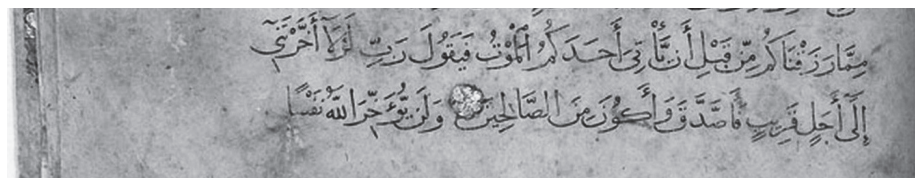 مِمَّا رَزَقْنَاكُمْ مِّن قَبْلِ أَن يَّأْتِىَ أَحَدَكُمُ ٱلْمَوْتُ فَيَقُولَ رَبِّ لَوْلَآ أَخَّرْتَنِىٓ
إِلَىٰٓ أَجَلٍ قَرِيبٍ فَأَصَّدَّقَ وَأَكُونَ مِنَ الصَّالِحِينَ وَلَن يُّؤَخِّرَ اللَّهُ نَفْسًا